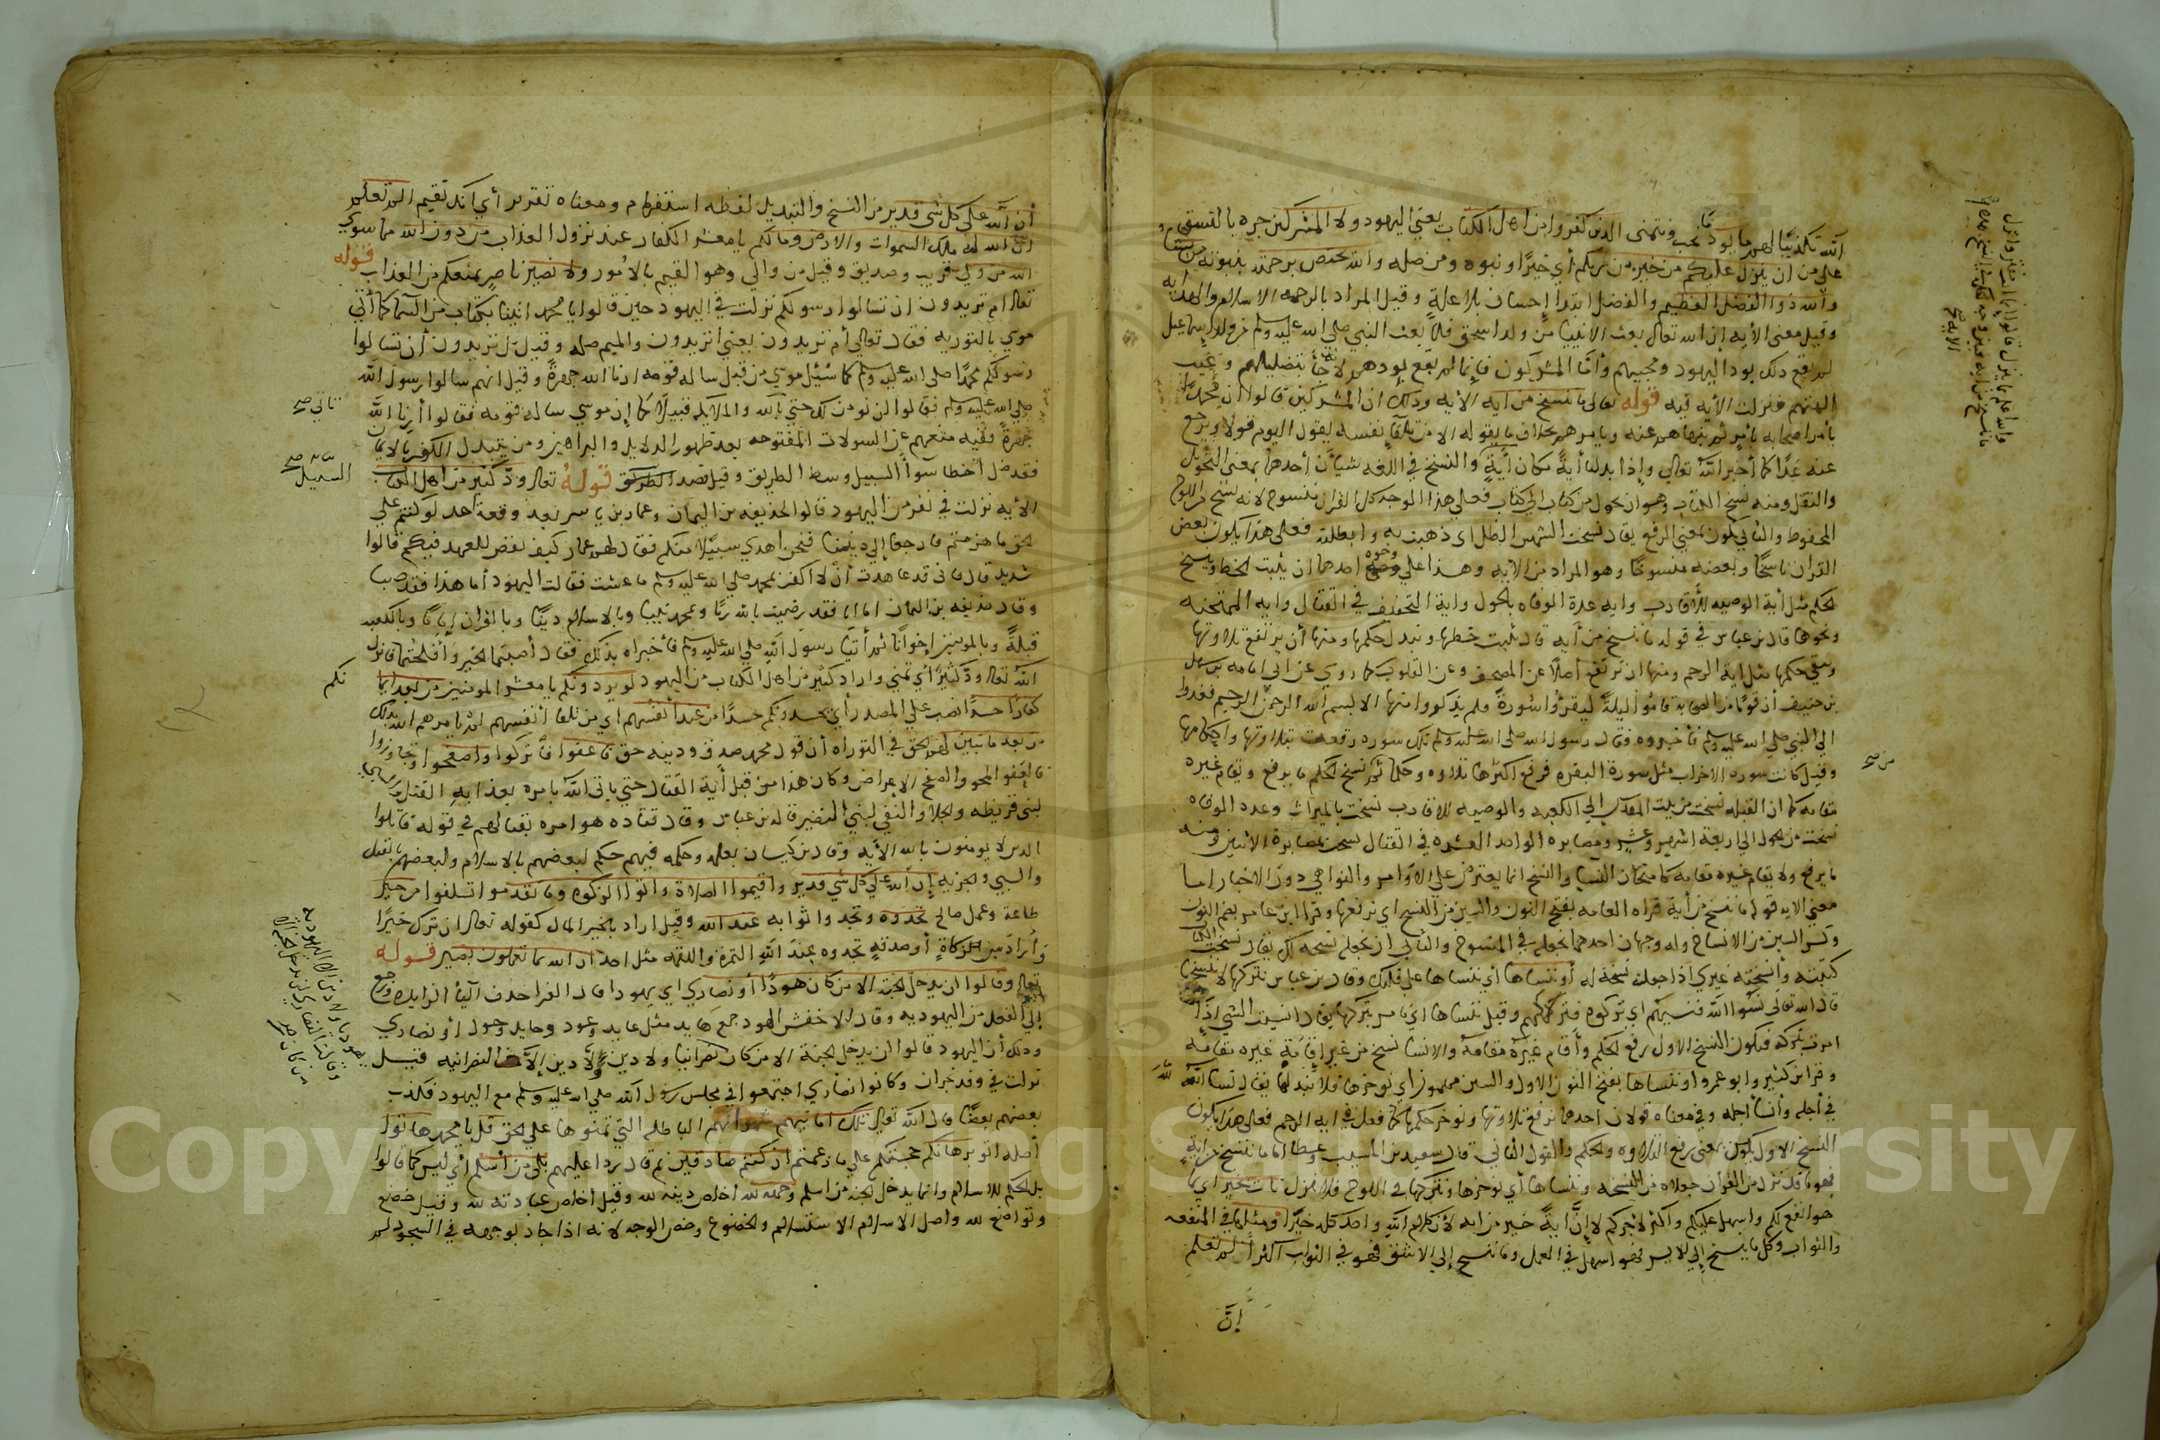 الله تكذيبا لهم ما يود ما يحب ويتمنى الذين كفروا من اهل الكتاب يعني اليهود ولا المشركين جره بالنسق
علي من ان ينزل عليكم من خير من ربكم أي خيرا ونبوه ومن صله والله يختص برحمته بنبوته من يشا
والله ذو الفضل العظيم والفضل ابتدا إحسان بلا علة وقيل المراد بالرحمه الاسلام والهدايه
وقيل معنى الأيه ان الله تعالى بعث الانبيا من ولد اسحق فلما بعث النبي صلى الله عليه وسلم من ولد إسماعيل
لم يقع ذلك بود اليهود ومحبتهم وأما المشركون فإنما لم يقع بودهم لانه جا بتضليلهم وعيب
الهتهم فنزلت الأيه فيه قوله تعالى ما ننسخ من ايه الأيه وذلك ان المشركين قالوا ان محمدا
يأمر اصحابه بأمر ثم ينهاهم عنه ويامرهم بخلاف ما يقوله الا من تلقا نفسه يقول اليوم قولا ويرجع
عنه غدا كما أخبر الله تعالى وإذا بدلنا أية مكان أية والنسخ في اللغه شيأن أحدهما بمعنى التحويل
والنقل ومنه نسخ الكتاب وهو ان يحول من كتاب الى كتاب فعلى هذا الوجه كل القران منسوخ لانه نسخ من اللوح
المحفوظ والثاني يكون بمعنى الرفع يقال نسخت الشمس الظل اى ذهبت به وابطلته فعلى هذا يكون بعض
القران ناسخا وبعضه منسوخا وهو المراد من الأيه وهذا علي وجوه احدها ان يثبت الخط وينسخ
الحكم مثل أية الوصيه للأقارب وايه عدة الوفاه بالحول واية التخفيف في القتال وايه الممتحنه
ونحوها قال بن عباس في قوله ما ننسخ من أيه قال نثبت خطها ونبدل حكمها ومنها أن يرتفع تلاوتها
وبقي حكمها مثل اية الرجم ومنها ان ترتفع أصلا عن المصحف وعن القلوب كما روي عن ابى امامه بن سهل
بن حنيف أن قوما من الصحابة قاموا ليلة ليقرؤا سورة فلم يذكروا منها الا بسم الله الرحمن الرحيم فغدوا
الى النبي صلى الله عليه وسلم فأخبروه فقال رسول الله صلى الله عليه وسلم تلك سوره رفعت بتلاوتها واحكامها
وقيل كانت سوره الاحزاب مثل سورة البقره فرفع اكثرها تلاوه وحكما ثم نسخ الحكم ما يرفع ويقام غيره
مقامه كما ان القبله نسخت من بيت المقدس إلى الكعبه والوصيه للاقارب نسخت بالميراث وعده الوفاه
نسخت من الحول الي اربعة اشهر وعشر ومصابره الواحد العشره في القتال نسخت بمصابرة الاثنين ومنه
ما يرفع ولا يقام غيره مقامه كامتحان النسا والنسخ انما يعترض على الاوامر والنواهي دون الاخبار اما
معنى الايه قوله ما ننسخ من أية قراه العامه بفتح النون والسين من النسخ اي نرفعها وقرا ابن عامر بضم النون
وكسر السين من الانساخ وله وجهان احدهما نجعله في المنسوخ والثانى ان نجعله نسخه لك يقال نسخت الكتاب
كتبته وأنسخته غيري اذا جعلته نسخة له أو ننساها أي ننساها على قلبك وقال بن عباس نتركها لا ننسخها
قال الله تعالى نسوا الله فنسيهم اي تركوه فتركهم وقيل ننساها اى نامر بتركها يقال انسيت الشي اذا
امرت بتركه فيكون النسخ الاول رفع الحكم وأقام غيره مقامه والانسا نسخ من غير اقامة غيره مقامه
وقرا بن كثير وابو عمرو او ننساها بفتح النون الاول والسين مهموز أي نوخرها فلا نبدلها يقال نسا الله
في أجله وأنسأ أجله وفي معناه قولان احدهما نرفع تلاوتها ونوخر حكمها كما فعل في ايه الرجم فعلى هذا يكون
النسخ الاول يكون بمعنى رفع التلاوه والحكم والقول الثانى قال سعيد بن المسيب وعطا اما ما ننسخ من اية
فهو ما قد نزل من القران جعلاه من النسخه وننساها أي نوخرها ونتركها في اللوح فلا تنزل نات بخير اي ما
هو انفع لكم واسهل عليكم واكثر لاجركم لا إن أية خير من ايه لأن كلام الله واحد كله خيرا ومثلها في المنفعه
والثواب وكل ما ينسخ إلي الايسر فهو اسهل في العمل وما ننسخ إلي الاشق فهو في الثواب اكثر ألم تعلم
إن
أن الله على كل شى قدير من النسخ والتبديل لفظه استفهام ومعناه تقرير أي انك تعلم الم تعلم
ان الله له ملك السموات والارض وما لكم يا معشر الكفار عند نزول العذاب من دون الله مما سوي
الله من ولي قريب وصديق وقيل من والي وهو القيم بالامور ولا نصير ناصر يمنعكم من العذاب قوله
تعالى ام تريدون ان تسالوا رسولكم نزلت في اليهود حين قالوا يا محمد ائتنا بكتاب من السما كما أتى
موسي بالتوريه فقال تعالى أم تريدون يعني اتريدون والميم صله وقيل بل تريدون أن تسالوا
رسولكم محمدا صلى الله عليه وسلم كما سئل موسي من قبل ساله قومه ارنا الله جهرة وقيل انهم سالوا رسول الله
صلى الله عليه وسلم فقالوا لن نومن لك حتي بالله والملايكه قبيلا كما إن موسي ساله قومه فقالوا أرنا الله
جهرة ففيه منعهم عن السوالات المقترحه بعد ظهور الدلايل والبراهين ومن يتبدل الكفر بالايمان
فقد ضل اخطا سوآ السبيل وسط الطريق وقيل قصد الطريق قوله تعالى ود كثير من اهل الكتاب
الأيه نزلت في نفر من اليهود قالوا لحذيفه بن اليمان وعمار بن ياسر بعد وقعة أحد لو كنتم على
الحق ما هزمتم فارجعا إلى ديننا فنحن اهدي سبيلا منكم فقال لهم عمار كيف نقض العهد فيكم قالوا
شديد قال فاني قد عاهدت أن لا اكفر بمحمد صلى الله عليه وسلم ما عشت فقالت اليهود أما هذا فقد صبا
وقال حذيفه بن اليمان اما انا فقد رضيت بالله ربا وبمحمد نبيا وبالاسلام دينا وبالقران إماما وبالكعبه
قبلة وبالمومنين إخوانا ثم أتيا رسول الله صلى الله عليه وسلم فأخبراه بذلك فقال أصبتما الخير وأفلحتما فانزل
الله تعالى ود كثير أي تمنى واراد كثير من اهل الكتاب من اليهود لو يردونكم يا معشر المومنين من بعد ايما
كفارا حسدا نصب علي المصدر أي يحسدونكم حسدا من عند أنفسهم اي من تلقا أنفسهم لم يامرهم الله بذلك
من بعد ما تبين لهم الحق في التوراه أن قول محمد صدق ودينه حق فاعفوا فاتركوا واصفحوا وتجاوزوا
فالعفو المحو والصفح الاعراض وكان هذا من قبل أية القتال حتي ياتي الله بامره بعذابه القتل والسبي
لبني قريظه والجلا والنفي لبني النضير قاله بن عباس وقال قتاده هو امره بقتالهم في قوله قاتلوا
الذين لا يومنون بالله الأيه وقال بن كيسان بعلمه وحكمه فيهم حكم لبعضهم بالاسلام ولبعضهم بالقتل
والسبي والجزيه إن الله على كل شي قدير واقيموا الصلاة واتوا الزكوه وما تقدموا تسلفوا من خير
طاعة وعمل صالح تجدوه وتجدوا ثوابه عند الله وقيل اراد بالخير المال كقوله تعالى ان ترك خيرا
وأراد من الزكاة أو صدقة تجدوه عند الله التمره واللقمه مثل احد ان الله بما تعملون بصير قوله
تعالى وقالوا لن يدخل الجنة الا من كان هودا أو نصاري اي يهودا قال الفرا حذف اليأ الزايده ورجع
إلي الفعل من اليهوديه وقال الاخفش الهود جمع هايد مثل عايد وعود وحايل وحول أو نصاري
وذلك أن اليهود قالوا لن يدخل الجنة الا من كان نصرانيا ولا دين ولا دين إلا النصرانيه فقيل
نزلت في وفد نجران وكانوا نصاري اجتمعوا في مجلس رسول الله صلى الله عليه وسلم مع اليهود فكذب
بعضهم بعضا قال الله تعالى تلك امانيهم شهواتهم الباطله التي تمنوها علي الحق قل يا محمد هاتوا
أصله اتو برهانكم حجتكم على ما زعمتم ان كنتم صادقين ثم قال ردا عليهم بلي من أسلم أي ليس كما قالوا
بل الحكم للاسلام وانما يدخل الجنه من اسلم وجهه لله أخلص دينه لله وقيل اخلص عبادته لله وقيل خضع
وتواضع لله واصل الاسلام الاستسلام والخضوع وخص الوجه لانه اذا جاد بوجهه في السجود لم